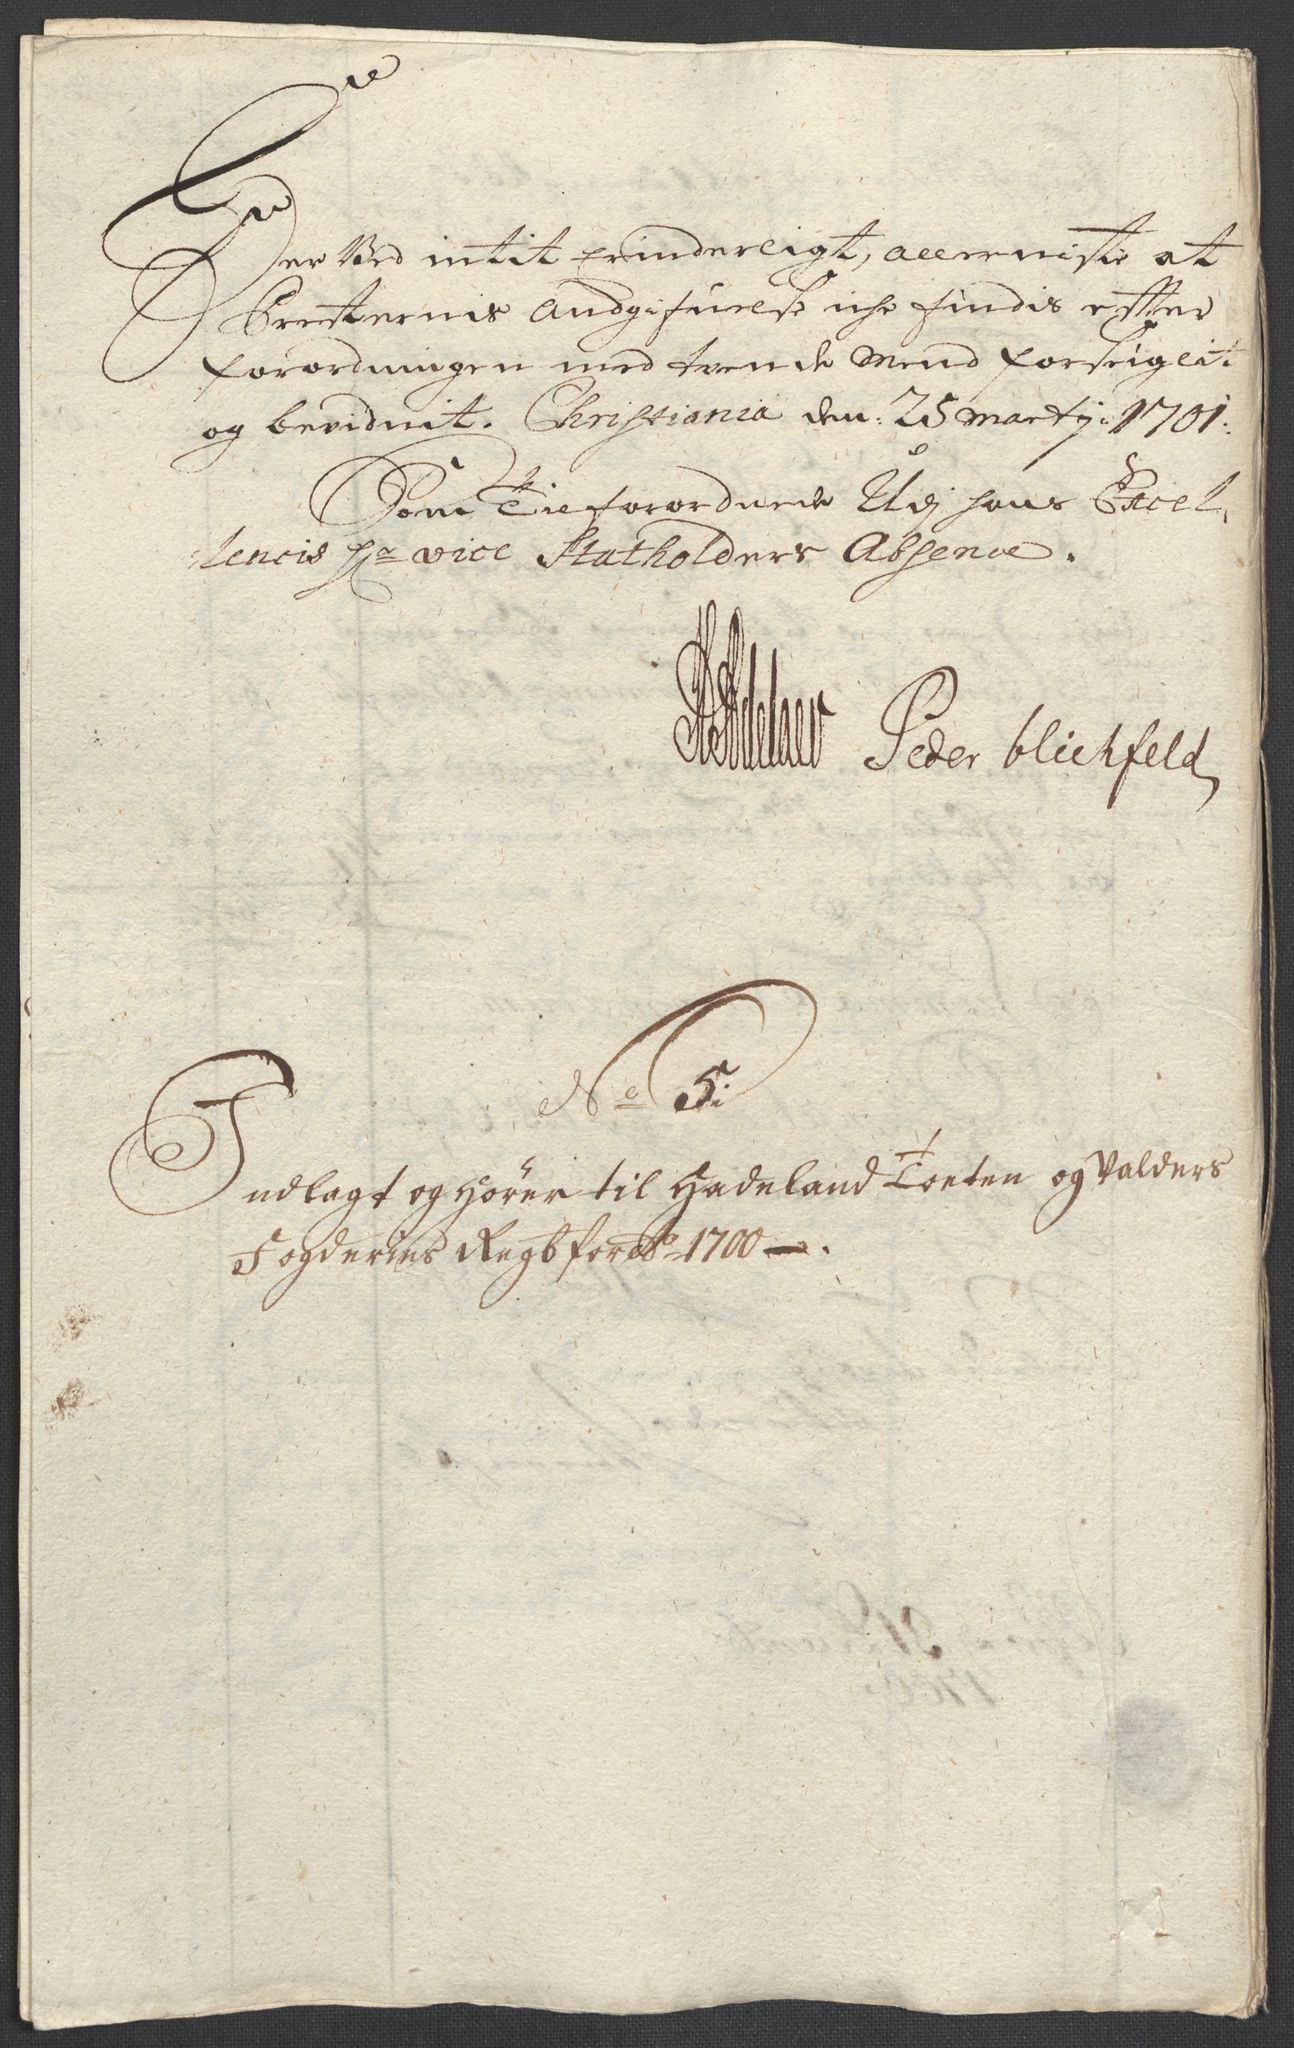 Her Ved intit Erinderligt, allerniste at
Presternis Andgifuelse iche findis effter
forordningen med tvende Mend forseiglit
og bevidnit. Christiania den: 25 Martij: 1701:
Som Tilforordnede Udj hans Excel-
lencis Hr vice Statholders Absence.
Adelaer Peder blichfeld
No 5:
Indlagt og Hører til Hadeland Toeten og Valders
Fogderies Regb for Ao 1700 —.